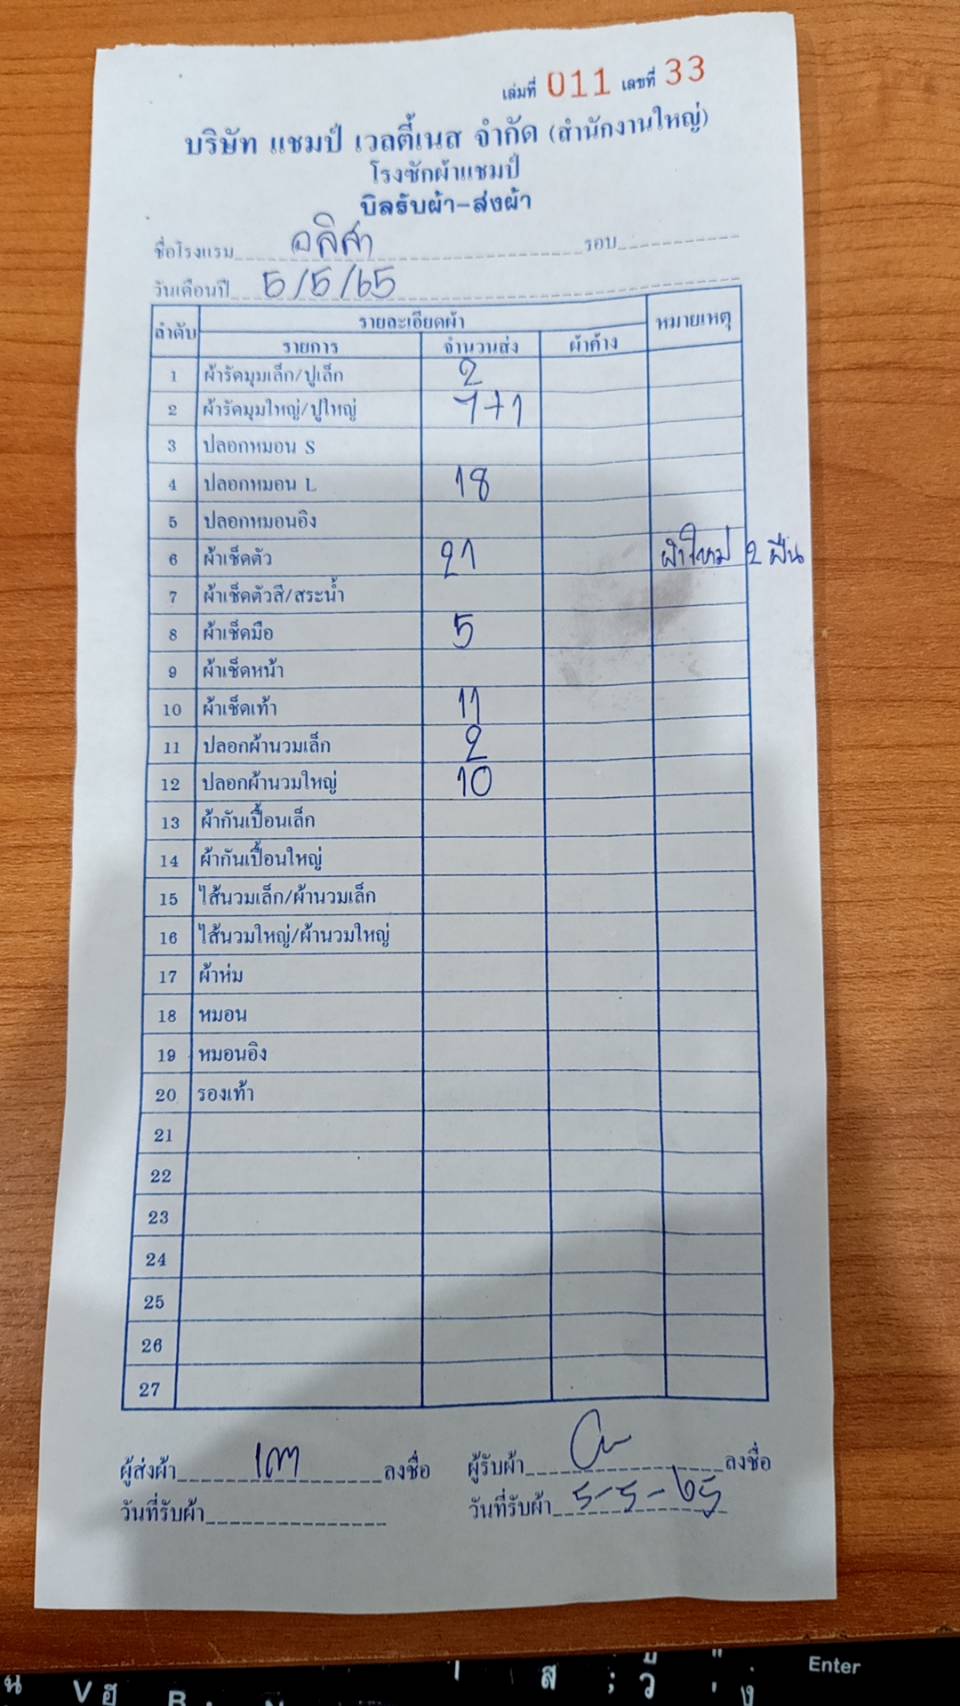 เล่มที่ 011 เลขที่ 33
บริษัท แชมป์ เวลตี้เนส จำกัด (สำนักงานใหญ่)
โรงซักผ้าแชมป์
บิลรับผ้า-ส่งผ้า
ชื่อโรงแรม อลิศา รอบ
วันเดือนปี 5/5/65
ลำดับ รายละเอียดผ้า หมายเหตุ
รายการ จำนวนส่ง ผ้าค้าง
1 ผ้ารัดมุมเล็ก/ปูเล็ก 2
2 ผ้ารัดมุมใหญ่/ปูใหญ่ 7+1
3 ปลอกหมอน S
4 ปลอกหมอน L 18
5 ปลอกหมอนอิง
6 ผ้าเช็ดตัว 21 ผ้าใหม่ 2 ผืน
7 ผ้าเช็ดตัวสี/สระน้ำ
8 ผ้าเช็ดมือ 5
9 ผ้าเช็ดหน้า
10 ผ้าเช็ดเท้า 11
11 ปลอกผ้านวมเล็ก 2
12 ปลอกผ้านวมใหญ่ 10
13 ผ้ากันเปื้อนเล็ก
14 ผ้ากันเปื้อนใหญ่
15 ไส้นวมเล็ก/ผ้านวมเล็ก
16 ไส้นวมใหญ่/ผ้านวมใหญ่
17 ผ้าห่ม
18 หมอน
19 หมอนอิง
20 รองเท้า
21
22
23
24
25
26
27
ผู้ส่งผ้า ลงชื่อ ผู้รับผ้า ลงชื่อ
วันที่รับผ้า วันที่รับผ้า 5-5-65
Enter